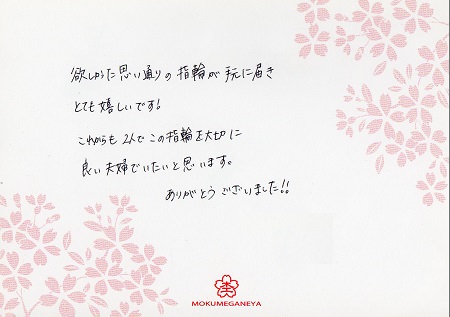 欲しかった思い通りの指輪が手元に届き
とても嬉しいです!
これからも2人でこの指輪を大切に
良い夫婦でいたいと思います。
ありがとうございました!!
MOKUMEGANEYA